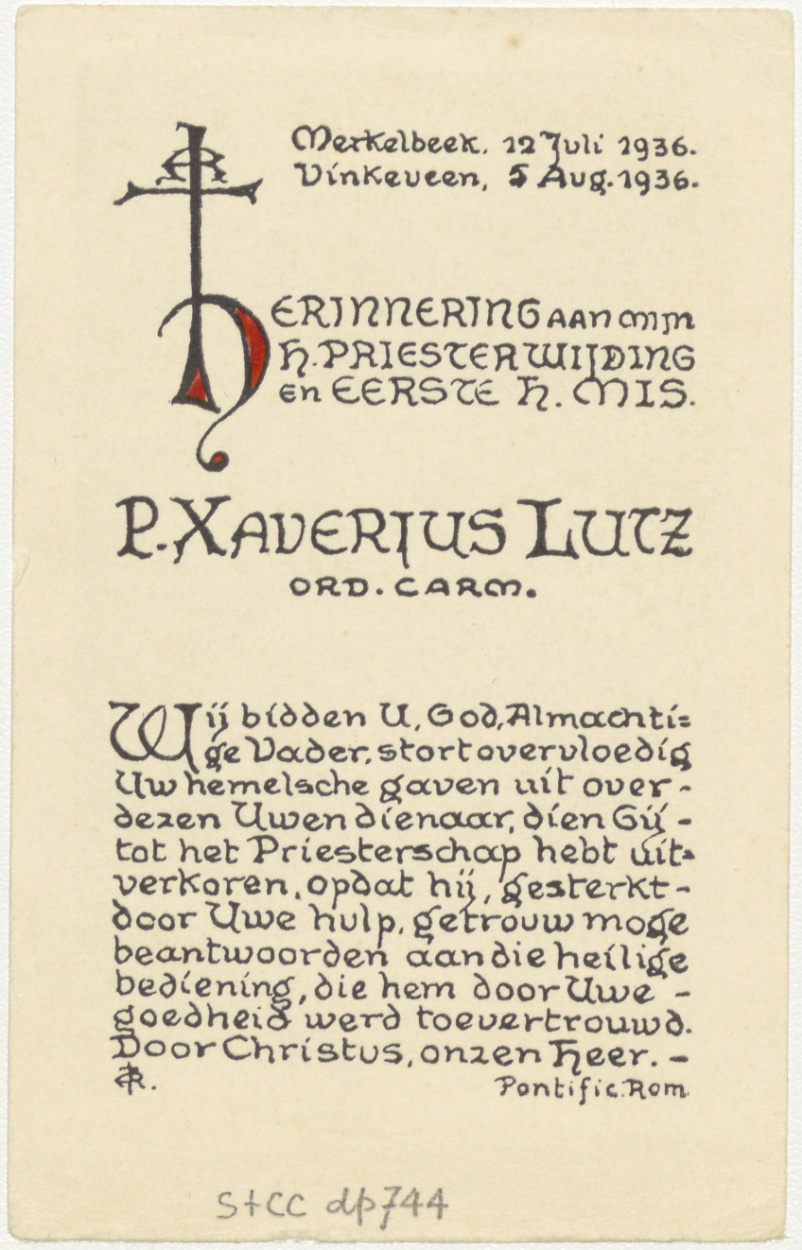 Merkelbeek, 12 Juli 1936.
Vinkeveen, 5 Aug. 1936.
HERINNERING AAN MIJN
H. PRIESTERWIJDING
en EERSTE H. MIS.
P. XAVERIUS LUTZ
ORD. CARM.
Wij bidden U, God, Almachti=
ge Vader, stort overvloedig
Uw hemelsche gaven uit over -
dezen Uwen dienaar, dien Gij -
tot het Priesterschap hebt uit-
verkoren, opdat hij, gesterkt -
door Uwe hulp, getrouw moge
beantwoorden aan die heilige
bediening, die hem door Uwe -
goedheid werd toevertrouwd.
Door Christus, onzen Heer. -
Pontific. Rom.
StCC dp744